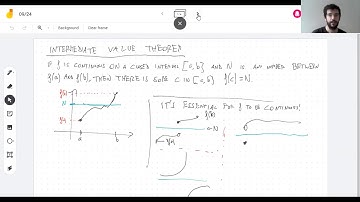 04/24
Background
Clear frame
INTERMEDIATE VALUE THEOREM
IF f IS CONTINUOUS ON A CLOSED INTERVAL [a, b] AND N IS AN NUMBER BETWEEN
f(a) AND f(b), THEN THERE IS SOME C IN [a, b] f(c) = N.
f(b)
N
f(a)
a
b
IT'S ESSENTIAL FOR f TO BE CONTINUOUS!
f(b)
N
f(a)